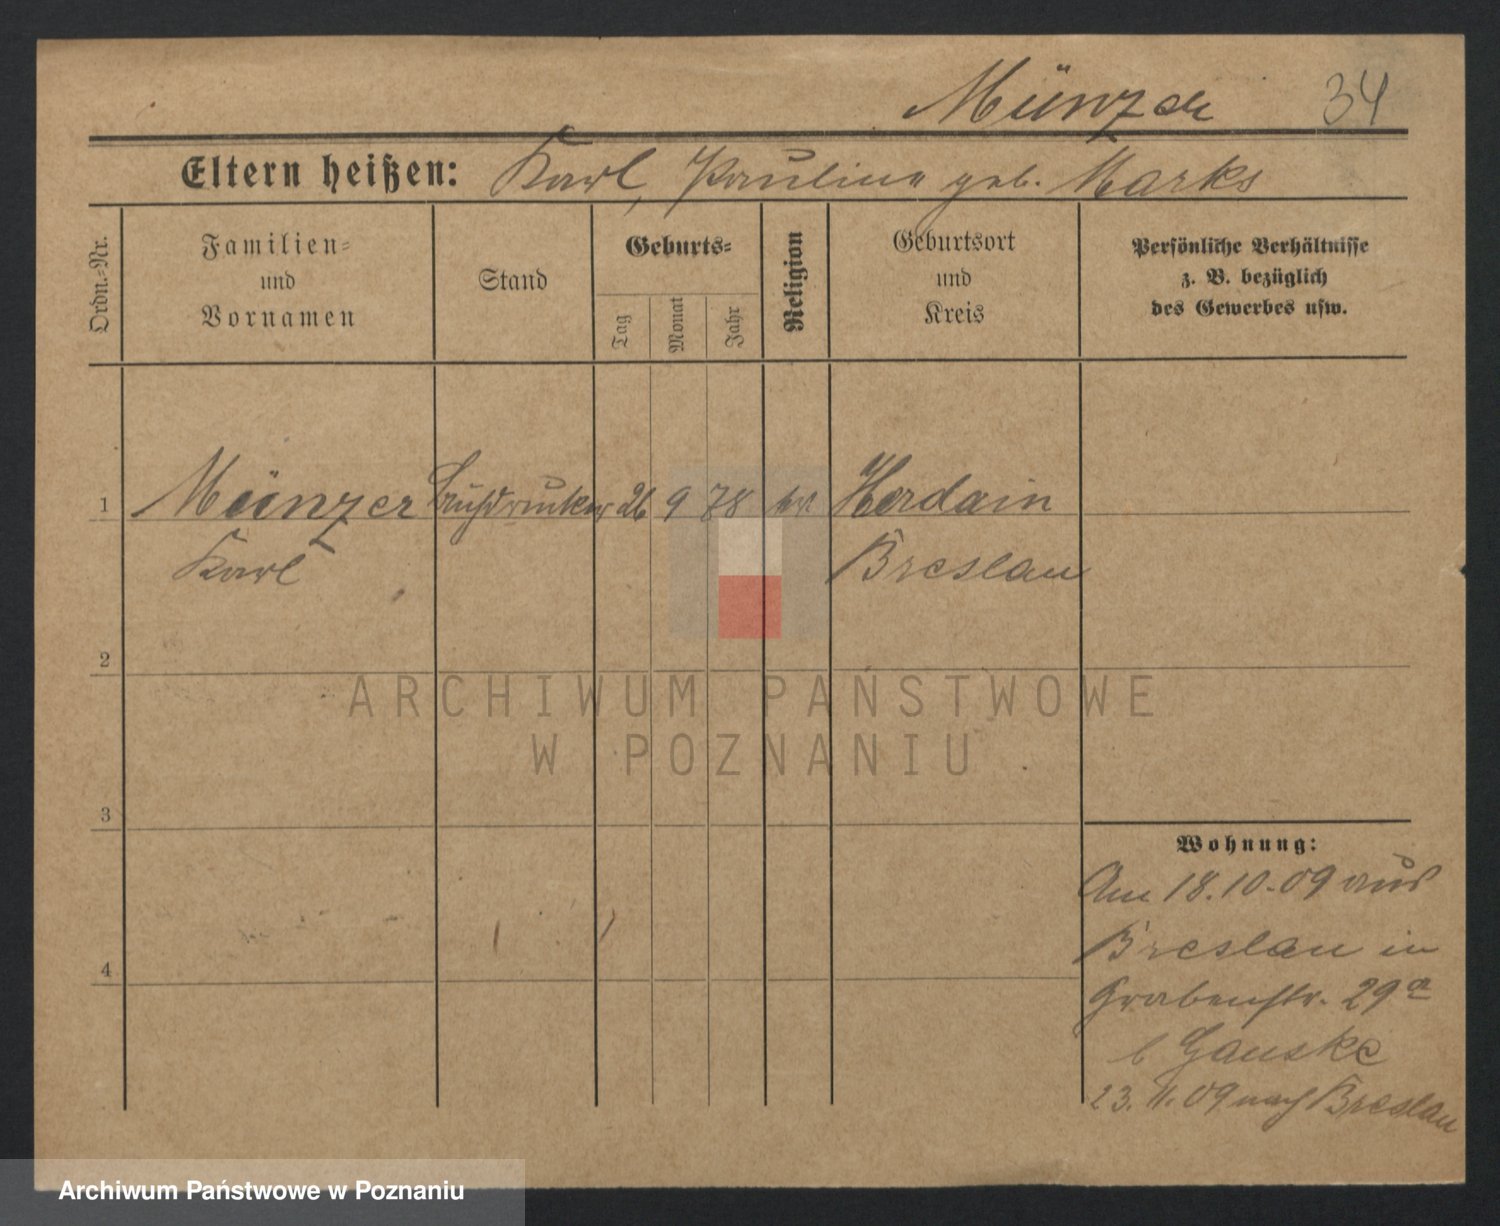 Münzer 34
Eltern heißen: Karl, Pauline geb. Marks
Ordn.-Nr.
Familien-
und
Vornamen
Stand
Geburts-
Tag
Monat
Jahr
Religion
Geburtsort
und
Kreis
Persönliche Verhältnisse
z. B. bezüglich
des Gewerbes usw.
1 Münzer Buchdrucker 26 9 78 Herdain
Karl Breslau
2
ARCHIWUM PAŃSTWOWE
W POZNANIU
3
Wohnung:
Am 18.10.09 aus
Breslau in
4
Grabenstr. 29a
b Gauske
23. 11. 09 nach Breslau
Archiwum Państwowe w Poznaniu